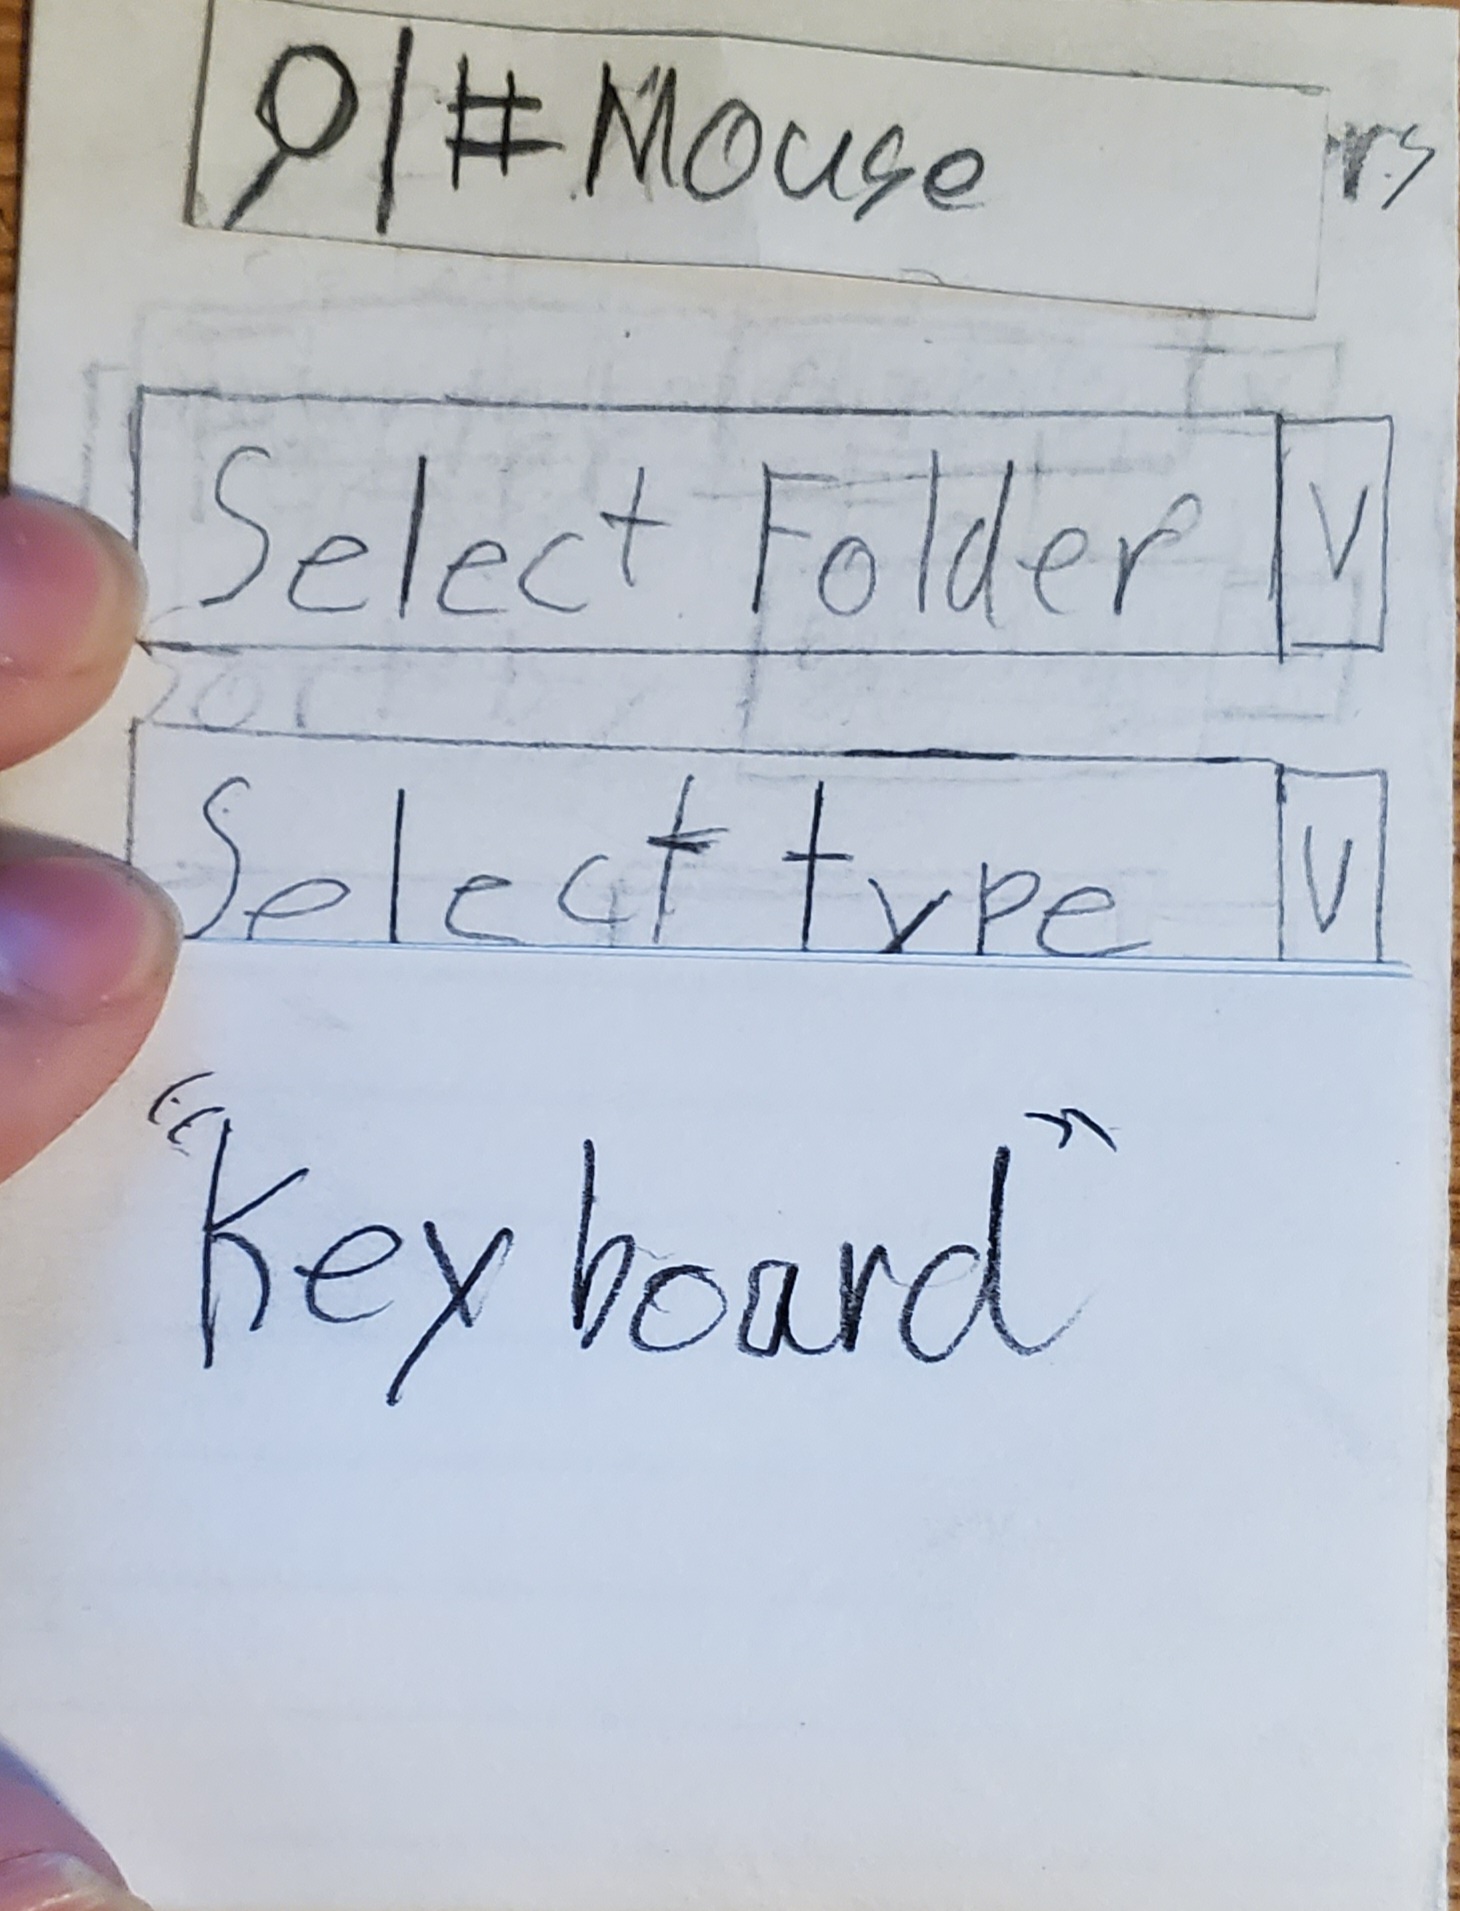 #Mouse
rs
Select Folder V
Select type V
"Keyboard"